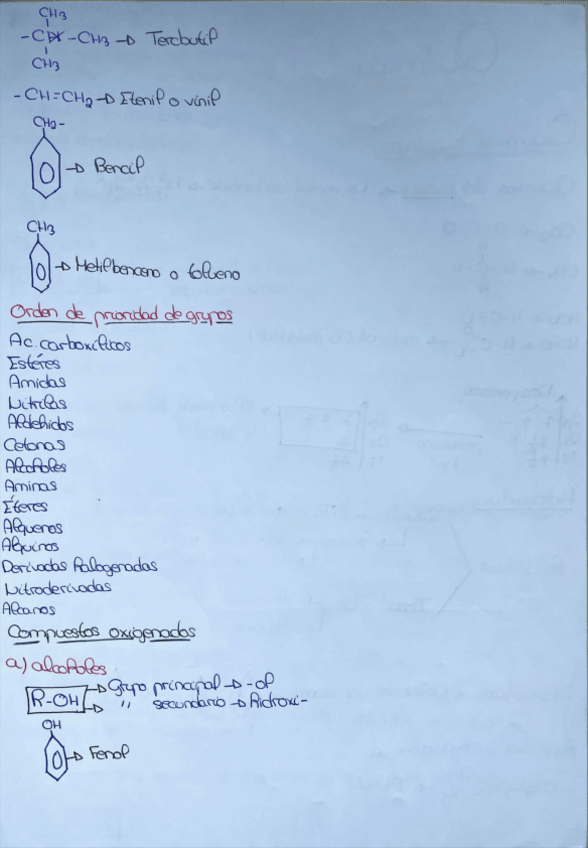 CH3
-C-CH3 → Tercbutil
CH3
-CH=CH2 → Etenil o vinil
CH2-
→ Bencil
CH3
→ Metilbenceno o tolueno
Orden de prioridad de grupos
Ac. carboxílicos
Estéres
Amidas
Nitrilos
Aldehidos
Cetonas
Alcoholes
Aminas
Éteres
Alquenos
Alquinos
Derivados halogenados
Nitroderivados
Alcanos
Compuestos oxigenados
a) alcoholes
R-OH → Grupo principal → -ol
→ " secundario → Hidroxi-
OH
→ Fenol